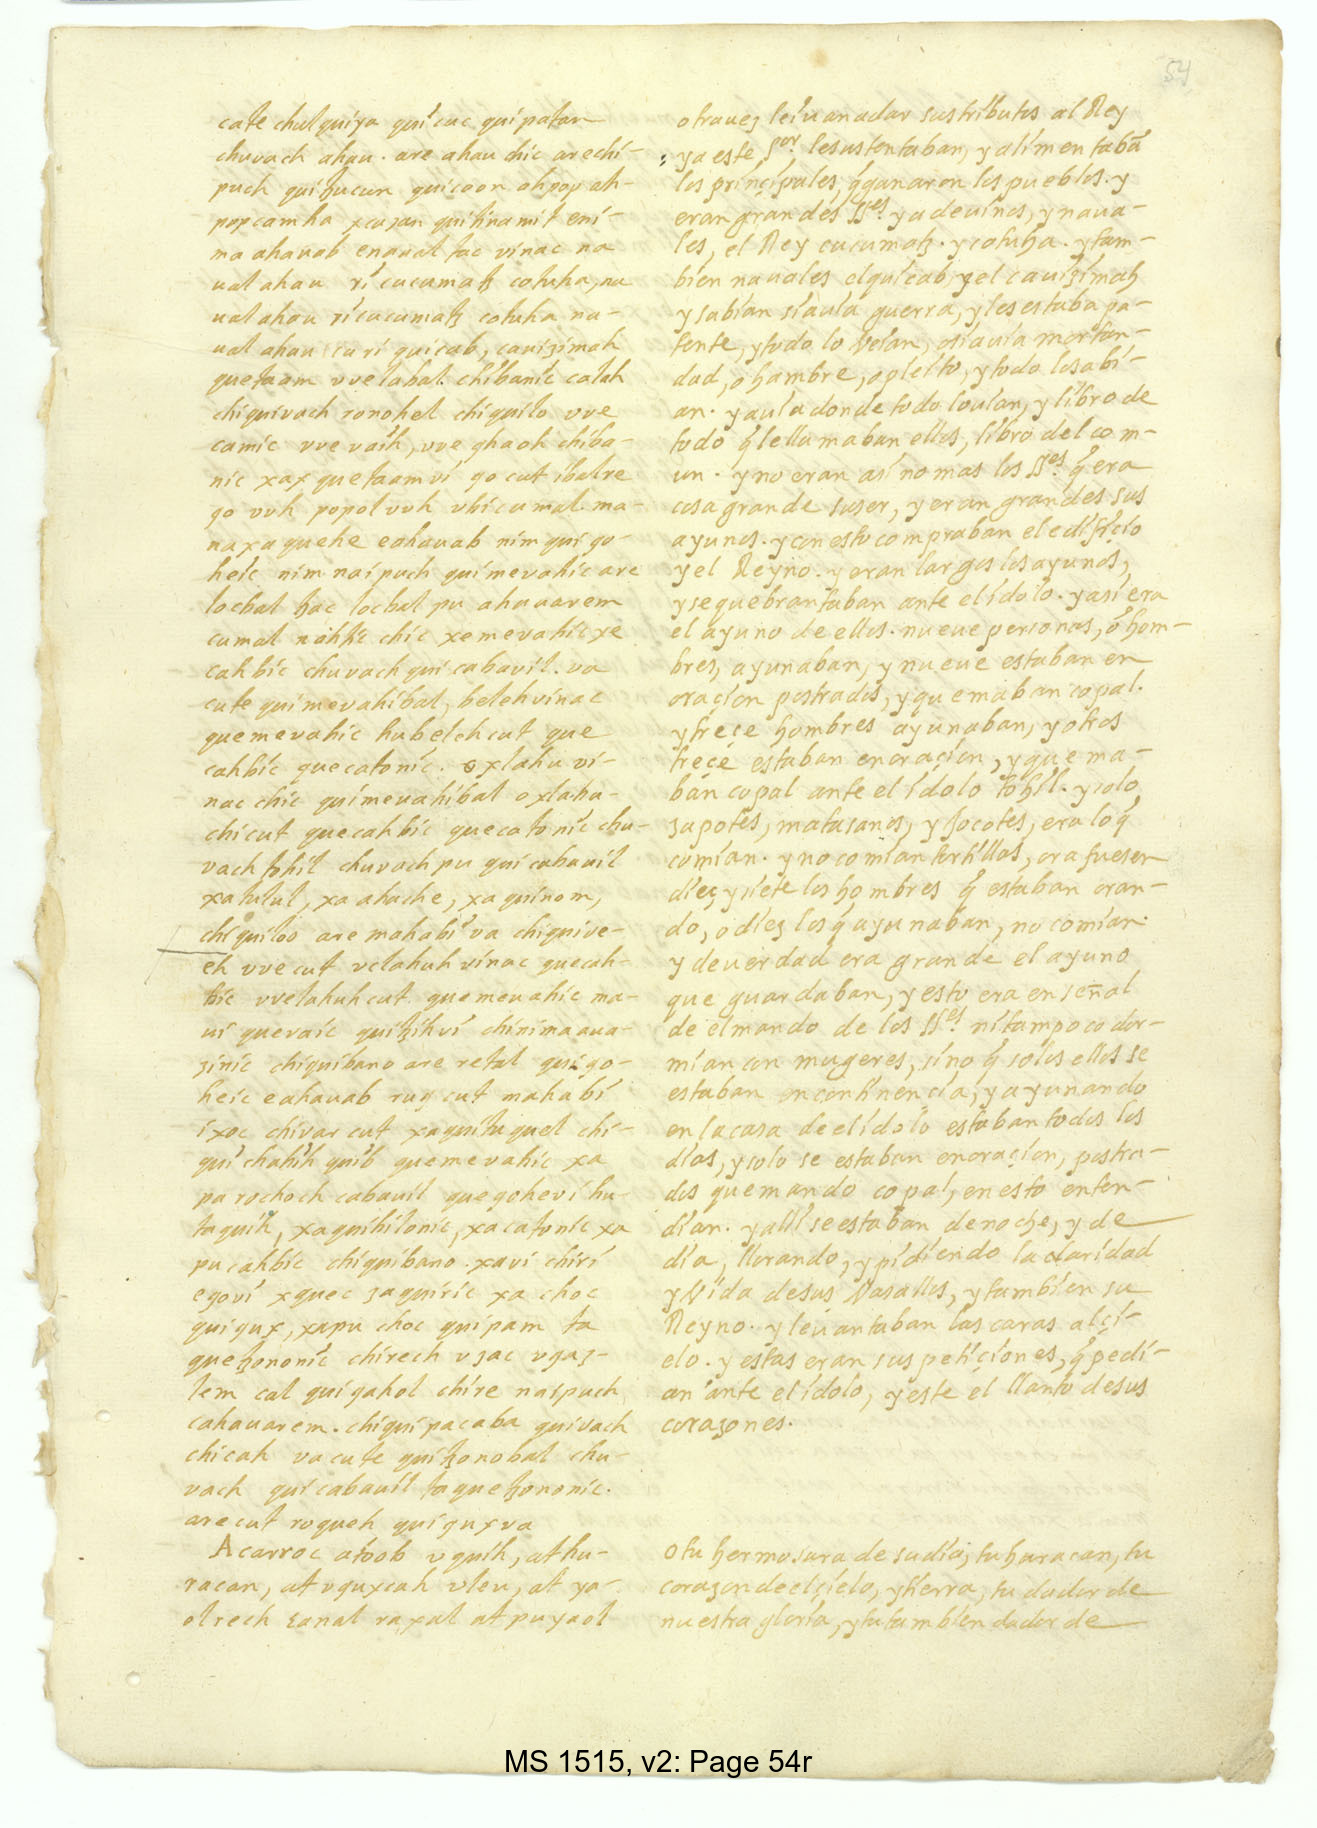 54
cate chulquiya qui cuc quipatan
chuvach ahau. are ahau chic arechi-
puch quitzucun quicoon ahpop ah-
popcamha xcazan quitinamit eni-
ma ahauab enaual tac vinac na
ual ahau ri cucumatz cotuha, na
ual ahau ri cucumatz cotuha na-
ual ahau cu ri quicab, cauizimah
quetaam vvelabal. chibanic calah
chiquivach ronohel chiquilo vve
camic vve vaih, vve ghaoh chiba-
nic xax quetaam vi qo cut ilbalre
qo vvh popol vvh vbi cumal. ma-
naxaquehe eahauab nim quiqo-
heic nim naipuch quimevahic are
locbal tzac locbal pu ahauarem
cumal nahtic chic xemevahic xe
cahbic chuvach qui cabavil. va
cute quimevahibal, beleh vinac
quemevahic hubeleh cut que
cahbic quecatonic. oxlahu vi-
nac chic quimevahibal oxlahu-
chicut quecahbic quecatonic chu-
vach tohil chuvach pu quicabauil
xa tulul, xa ahache, xa quinom,
chiquiloo are mahabi va chiquive-
eh vve cut vclahuh vinac quecah-
bic vvelahuh cut quemeuahic ma-
ui quevaic quitzihvi chinimaaua-
zinic chiquibano are retal quiqo-
heic eahauab ruq cut mahabi
ixoc chivar cut xaquituquel chi-
qui chahih quib quemevahic xa
pa rochoch cabauil queqohevi hu-
taquih, xaquihilonic, xacatonic xa
pu cahbic chiquibano. xavi chiri
eqovi xquec zaquiric xa choc
quiqux, xapu choc quipam ta
quetzononic chirech vzac vqaz-
lem cal quiqahol chire naipuch
cahauarem. chiquipacaba quivach
chicah va cute quitzonobal chu-
vach qui cabauil ta quetzononic.
are cut roqueh quiqux va
Acarroc atoob vquih, at hu-
racan, at vquxcah vleu, at ya-
ol rech zanal raxal at pu yaol
otrauez leiuan adar sus tributos al Rey
y a este Sor lesustentaban, y alimentabā
los principales, q̃ ganaron los pueblos. y
eran grandes SSes y adeuinos, y naua-
les, el Rey cucumatz. y cotuha. y tam-
bien nauales el quicab, y el cauizimah
y sabian si auia guerra, y les estaba pa-
tente, y todo lo Veian, o si auia mortan-
dad, o hambre, o pleito, y todo lo sabi-
an. y auia donde todo lo uian, y libro de
todo q̃ le llamaban ellos, libro del com-
un. y no eran asi no mas los SSes q̃ era
cosa grande su ser, y eran grandes sus
ayunos. y con esto compraban el edificio
y el Reyno. y eran largos los ayunos,
y se quebrantaban ante el idolo. y asi era
el ayuno de ellos. nueue personas, o hom-
bres, ayunaban, y nueue estaban en
oraçion postrados, y quemaban copal.
y treçe hombres ayunaban, y otros
treçe estaban en oraçion, y quema-
ban copal ante el idolo tohil. y solo
zapotes, matasanos, y jocotes, era lo q̃
comian. y no comian tortillas, ora fuesen
diez y siete los hombres q̃ estaban oran-
do, o diez los q̃ ayunaban, no comian.
y de uerdad era grande el ayuno
que guardaban, y esto era en señal
de el mando de los SSes ni tampoco dor-
mian con mugeres, sino q̃ solos ellos se
estaban en continencia, y ayunando
en la casa de el idolo estaban todos los
dias, y solo se estaban en oraçion, postra-
dos quemando copal, en esto enten-
dian. y alli se estaban de noche, y de
dia, llorando, y pidiendo la claridad
y Vida de sus Vasallos, y tambien su
Reyno. y leuantaban las caras al çi-
elo. y estas eran sus petiçiones, q̃ pedi-
an ante el idolo, y este el llanto de sus
corazones.
O tu hermosura de su dia, tu huracan, tu
corazon de el çielo, y tierra, tu dador de
nuestra gloria, y tu tambien dador de
MS 1515, v2: Page 54r